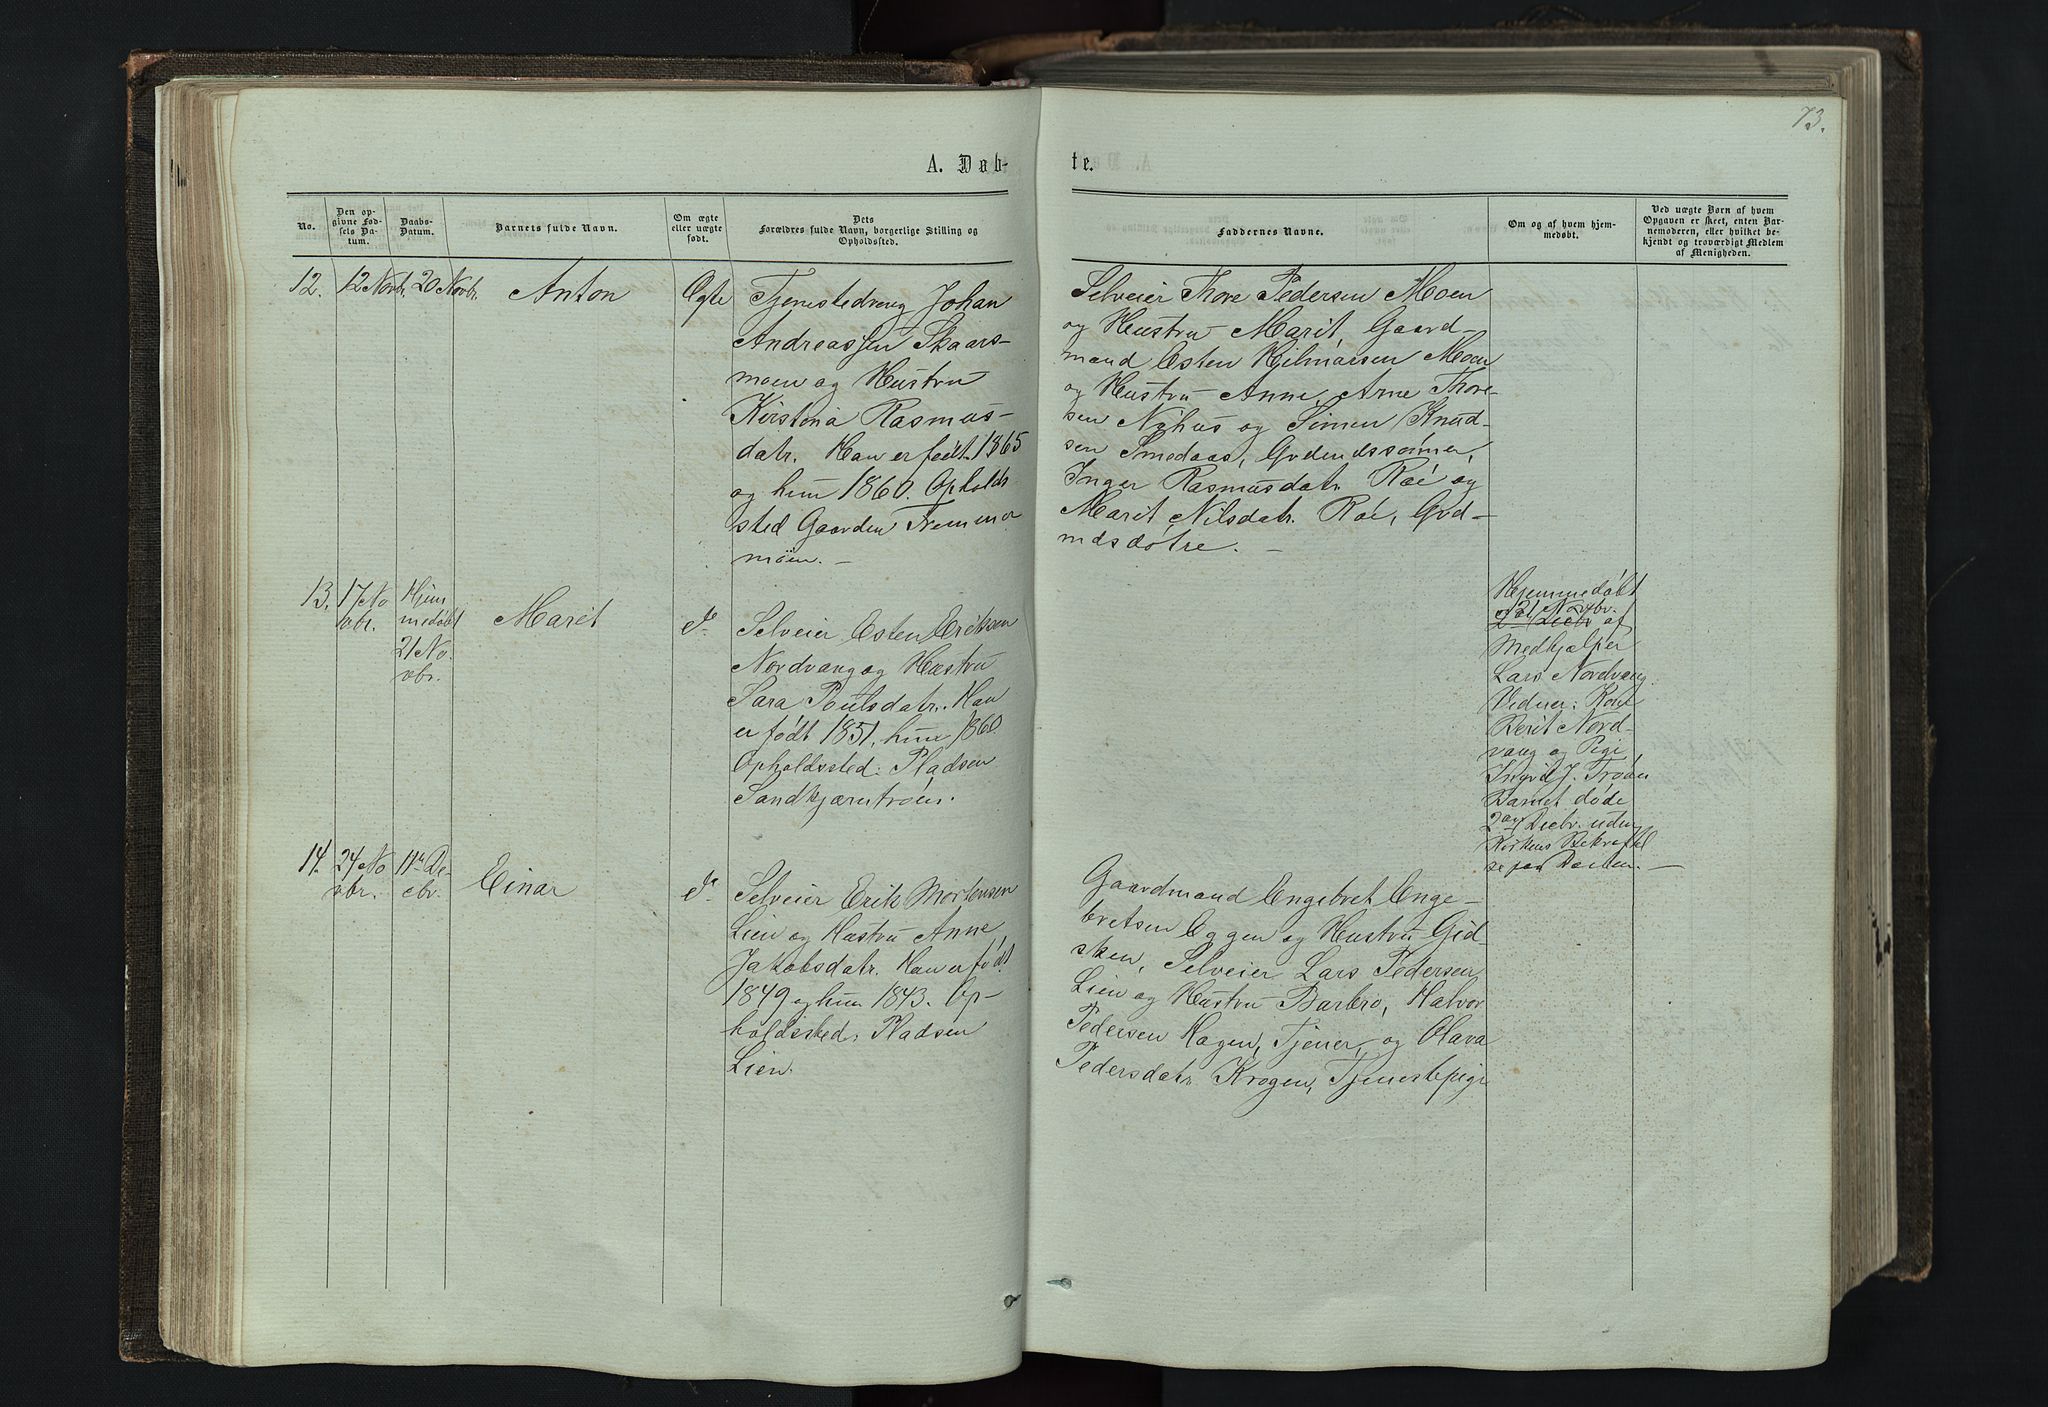 73.
A. Døb-
te.
No.
Den op-
givne Fød-
sels Da-
tum.
Daabs-
Datum.
Barnets fulde Navn.
Om ægte
eller uægte
født.
Dets
Forældres fulde Navn, borgerlige Stilling og
Opholdssted.
Faddernes Navne.
Om og af hvem hjem-
medøbt.
Ved uægte Børn af hvem
Opgaven er skeet, enten Bar-
nemoderen, eller hvilket be-
kjendt og troværdigt Medlem
af Menigheden.
12.
12 Novbr.
20 Novbr.
Anton
Ægte
Tjenestedreng Johan
Andreassen Skaars-
moen og Hustru
Kirstina Rasmus-
datr. Han er født 1865
og hun 1860. Ophold-
sted Gaarden
møen. —
Selveier Thore Pedersen Moen
og Hustru Marit, Gaard-
mand Esten Hilmarsen Moen
og Hustru Anne, Arne Thore-
sen Nyhus og Simen Knud-
sen Smedaas, Grdmdssønner,
Inger Rasmusdatr. Røe og
Marit Nilsdatr. Røe, Grd-
mdsdøtre. —
13.
17 No
vbr.
Hjem
medøbt
21 No.
vbr.
Marit
do
Selveier Esten Eriksen
Nordvang og Hustru
Sara Poulsdatr. Han
er født 1851, hun 1860.
Opholdssted: Pladsen
Sandkjærntrøen.
Hjemmedøbt
21 Novbr.
2den Decbr af
Medhjælper
Lars Nordvang.
Vidner: Kone
Berit Nord-
vang og Pige
Ingrid J. Trøen
Barnet døde
2den Decbr. uden
Kirkens Bekræftel
se paa Daaben. —
14.
24 No
vbr.
11te De-
cbr.
Einar
do
Selveier Erik Mortensen
Lien og Hustru Anne
Jakobsdatr. Han er født
1849 og hun 1843. Op-
holdssted: Pladsen
Lien.
Gaardmand Engebret Enge-
bretsen Eggen og Hustru Gid-
sken, Selveier Lars Pedersen
Lien og Hustru Barbro, Halvor
Pedersen Hagen, Tjener, og Olava
Pedersdatr Krogen, Tjenestepige